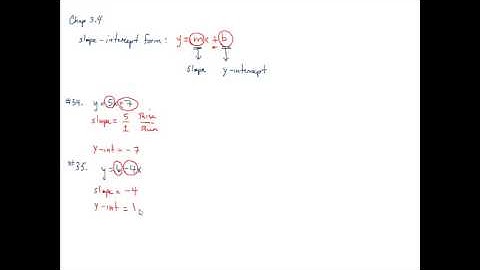 Chap 3.4
slope-intercept form: y = mx + b
slope y-intercept
#34. y = 5x - 7
slope = 5/1 Rise/Run
y-int = -7
#35. y = 6 - 4x
slope = -4
y-int =